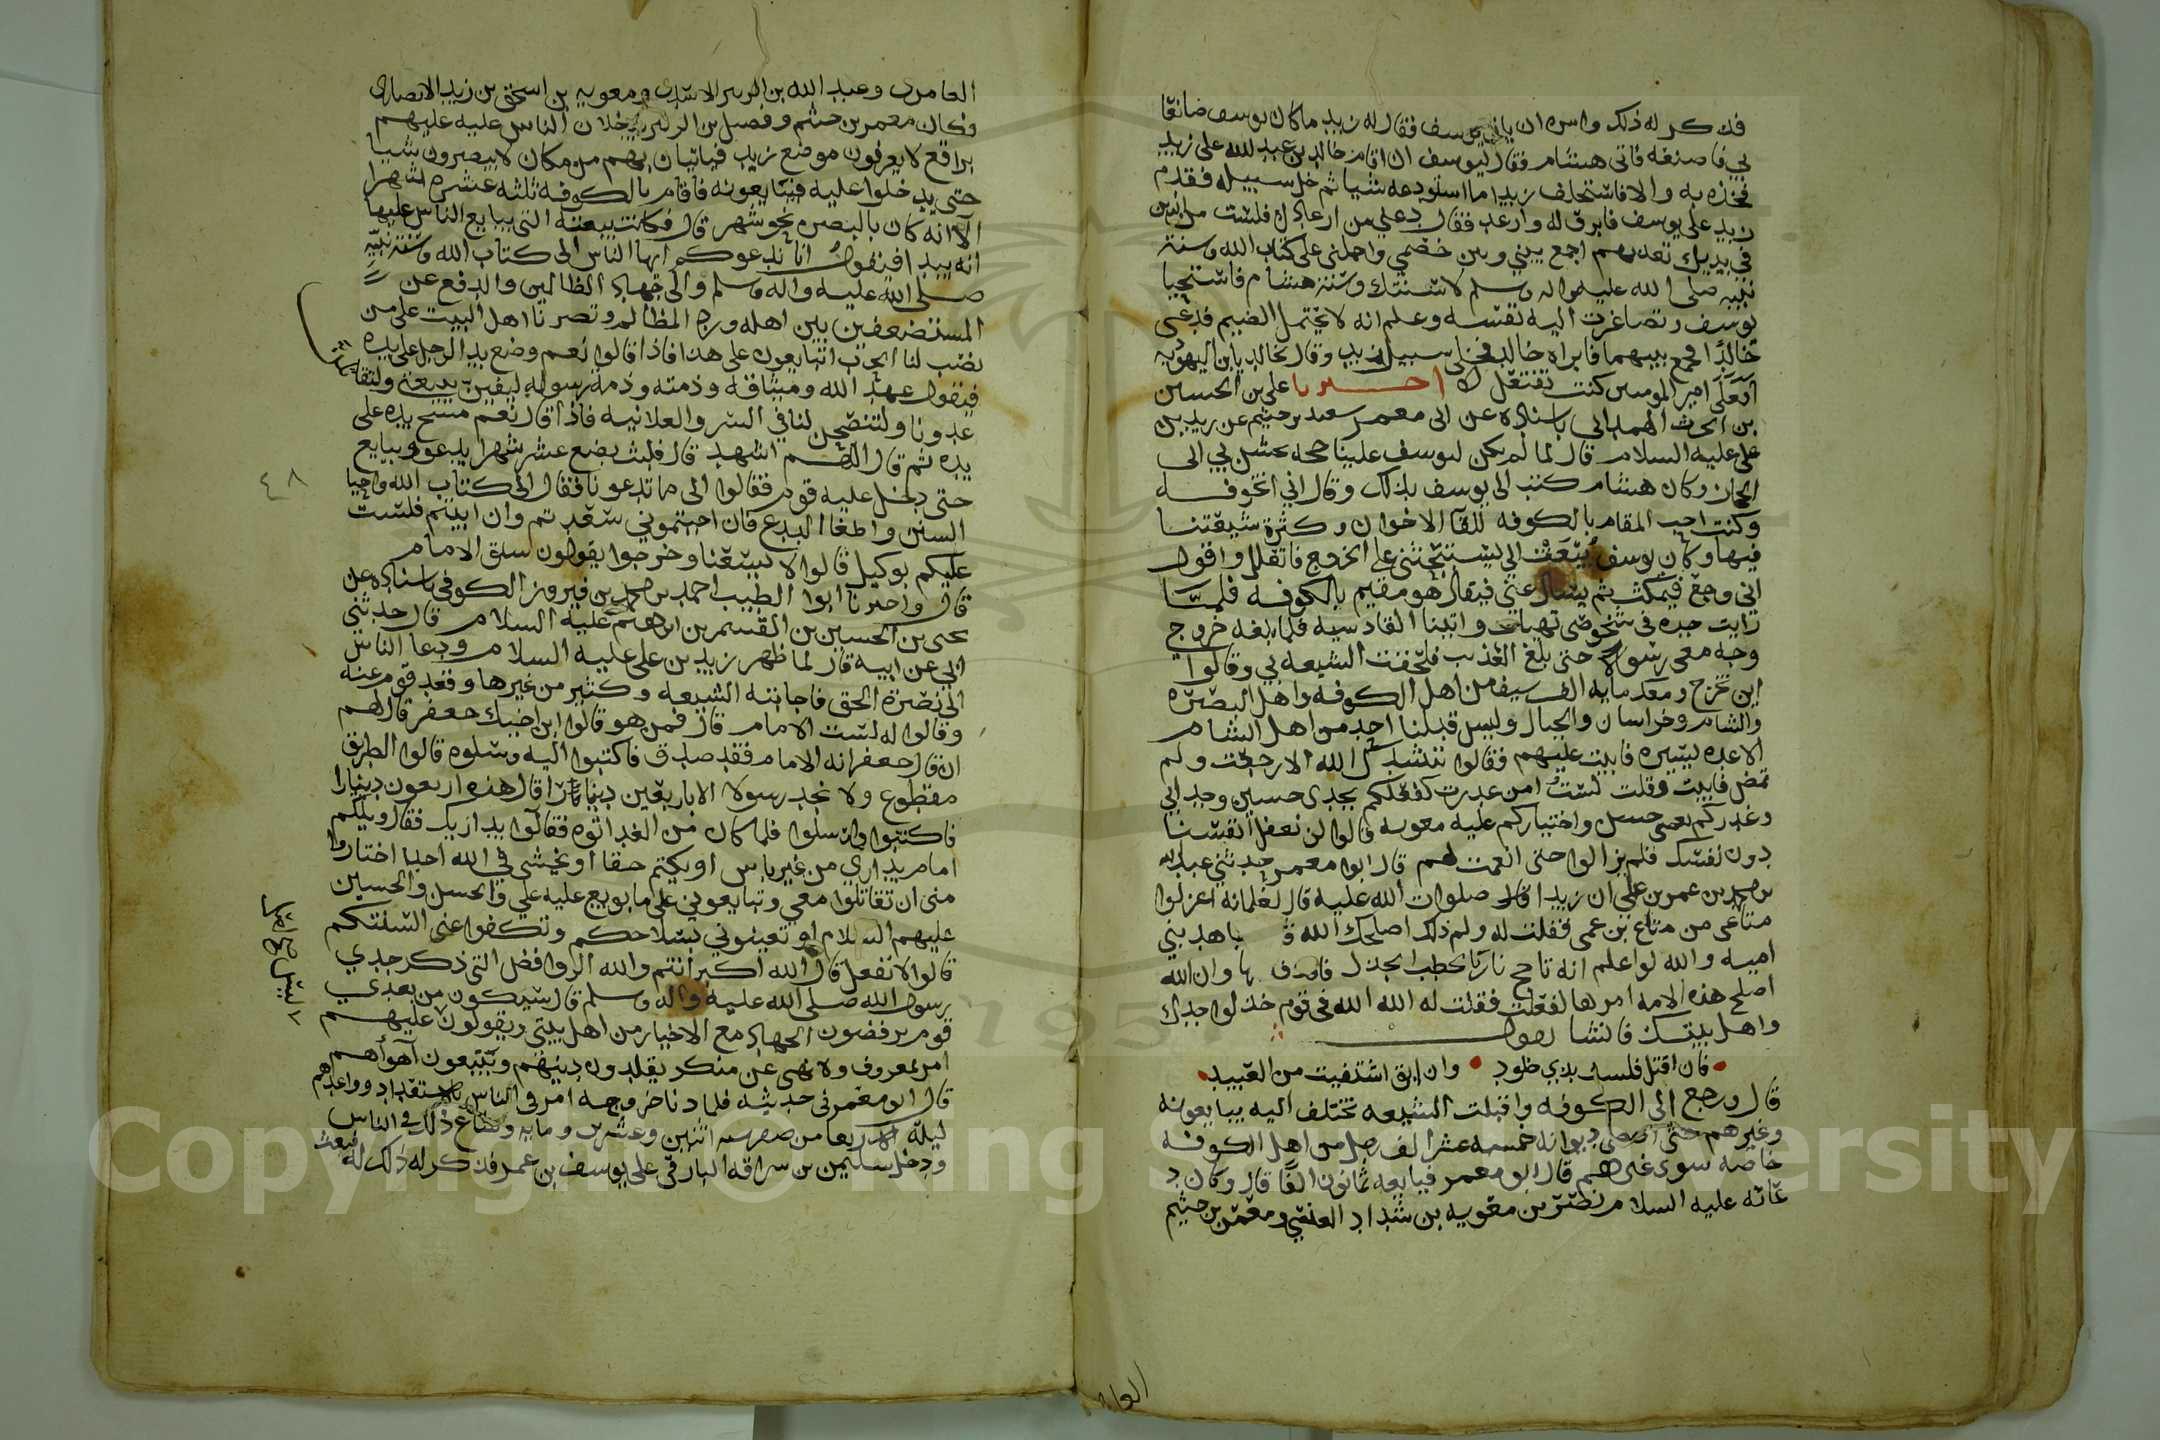 فذكر له ذلك وامره ان ياتي يوسف فقال له زيد ما كان يوسف صانعا
بي فاصنعه فاتى هشام فقال ليوسف ان اقام خالد بن عبد الله على زيد
فخذه به والا فاستحلف زيدا ما استودعه شيا ثم خل سبيله فقدم
زيد على يوسف فابرق له وارعد فقال دعني من ارعادك فلست من الذين
في يديك تعذبهم اجمع بيني وبين خصمي واحملني على كتاب الله وسنة
نبيه صلى الله عليه واله وسلم لا سنتك وسنة هشام فاستحيا
يوسف وتصاغرت اليه نفسه وعلم انه لا يحتمل الضيم فدعى
خالدا فجمع بينهما فابراه خالد فخلى سبيل زيد وقال لخالد يا بن اليهوديه
افعلى امير المومنين كنت تفتعل اخبرنا علي بن الحسين
بن الحرث الهمداني باسناده عن ابي معمر سعيد بن خثيم عن زيد بن
علي عليه السلام قال لما لم يكن ليوسف علينا حجه بي الى
الحجاز وكان هشام كتب الى يوسف بذلك وقال اني اتخوفه
وكنت احب المقام بالكوفه للقا الاخوان وكثرة شيعتنا
فيها وكان يوسف يبعث الي يستحثني على الخروج فاتعلل واقول
اني وجع فيمكث ثم يسال عني فيقال هو مقيم بالكوفه فلما
رايت جده في شخوصي تهيات واتينا القادسيه فلما بلغه خروجي
وجه معي رسولا حتى بلغ العذيب فلحقت الشيعه بي وقالوا
اين تخرج ومعك مايه الف سيف من اهل الكوفه واهل البصره
والشام وخراسان والجبال وليس قبلنا احد من اهل الشام
الا عده يسيره فابيت عليهم فقالوا ننشدك الله الا رجعت ولم
تمض فابيت وقلت لست امن غدركم كفعلكم بجدي حسين وجد ابي
وغدركم بعمي حسن واختياركم عليه معويه قالوا لن نفعل انفسنا
دون نفسك فلم يزالوا حتى انعمت لهم قال ابو معمر حدثني عبد الله
بن محمد بن عمر بن علي ان زيدا صلوات الله عليه قال لغلمانه اعزلوا
متاعي من متاع بن عمي فقلت له ولم ذلك اصلحك الله اجاهد بني
اميه والله لو اعلم انه تاجج نار بالحطب الجزل وان الله
اصلح هذه الامه امرها لفعلت فقلت له الله الله في قوم خذلوا جدك
واهل بيتك فانشا يقول
فان اقتل فلست بذي خلود وان ابق اشتفيت من العبيد
قال ورجع الى الكوفه واقبلت الشيعه تختلف اليه يبايعونه
وغيرهم حتى احصى ديوانه خمسه عشر الف رجل من اهل الكوفه
خاصه سوى غيرهم قال ابو معمر فبايعه ثمانون الفا قال وكان د
عاته عليه السلام نصر بن معويه بن شداد العبسي ومعمر بن خثيم
العا
العامري وعبد الله بن الزبير الاسدي ومعويه بن اسحق بن زيد الانصاري
وكان معمر بن خثيم وفضيل بن الزبير يدخلان الناس عليه عليهم
براقع لا يعرفون موضع زيد فياتيان بهم من مكان لا يبصرون شيا
حتى يدخلوا عليه فيبايعونه فاقام بالكوفه ثلثه عشر شهرا
الا انه كان بالبصره نحو شهر قال فكانت بيعته التي يبايع الناس عليها
انه يبدا فيقول انا ندعوكم ايها الناس الى كتاب الله وسنة نبيه
صلى الله عليه واله وسلم والى جهاد الظالمين والدفع عن
المستضعفين بين اهله ورد المظالم ونصرتنا اهل البيت على من
نصب لنا الحرب اتبايعون على هذا فاذا قالوا نعم وضع يد الرجل على يده
فيقول عهد الله وميثاقه وذمته وذمة رسوله ليفين ببيعتي ولتقا
تلن
عدونا ولتنصحن لنا في السر والعلانيه فاذا قال نعم مسح يده على
يده ثم قال اللهم اشهد قال فلبث بضع عشر شهرا يدعو ويبايع
حتى دخل عليه قوم فقالوا الى ما تدعونا فقال الى كتاب الله واحيا
السنن واطفا البدع فان اجبتموني سعدتم وان ابيتم فلست
عليكم بوكيل قالوا لا يسعنا وخرجوا يقولون سبق الامام
قال واخبرنا ابو الطيب احمد بن محمد بن فيروز الكوفي باسناده عن
يحيى بن الحسين بن القسم بن ابرهيم عليه السلام قال حدثني
ابي عن ابيه قال لما ظهر زيد بن علي عليه السلام ودعا الناس
الى نصرة الحق فاجابته الشيعه وكثير من غيرها وقعد قوم عنه
وقالوا له لست الامام قال فمن هو قالوا ابن اخيك جعفر قال لهم
ان قال جعفر انه الامام فقد صدق فاكتبوا اليه وسلوه قالوا الطريق
مقطوع ولا نجد رسولا الا باربعين دينارا قال هذه اربعون دينارا
فاكتبوا وارسلوا فلما كان من الغد اتوه فقالوا يداريك فقال ويلكم
امام يداري من غير باس او يكتم حقا او يخشى في الله احدا اختاروا
مني ان تقاتلوا معي وتبايعوني على ما بويع عليه علي والحسن والحسين
عليهم السلام او تعينوني بسلاحكم وتكفوا عني السنتكم
قالوا لا نفعل قال الله اكبر انتم والله الروافض التي ذكر جدي
رسول الله صلى الله عليه واله وسلم قال سيكون من بعدي
قوم يرفضون الجهاد مع الاخيار من اهل بيتي ويقولون ليس عليهم
امر بمعروف ولا نهى عن منكر يقلدون دينهم ويتبعون اهوآهم
قال ابو معمر في حديثه فلما دنا خروجه امر في الناس بالاستعداد وواعدهم
ليله الاربعا من صفر سنه اثنين وعشرين ومايه وشاع ذلك في الناس
ودخل سليمن بن سراقه البارقي على يوسف بن عمر فذكر له ذلك له فبعث
٤٨
Copyright © King Saud University
1957